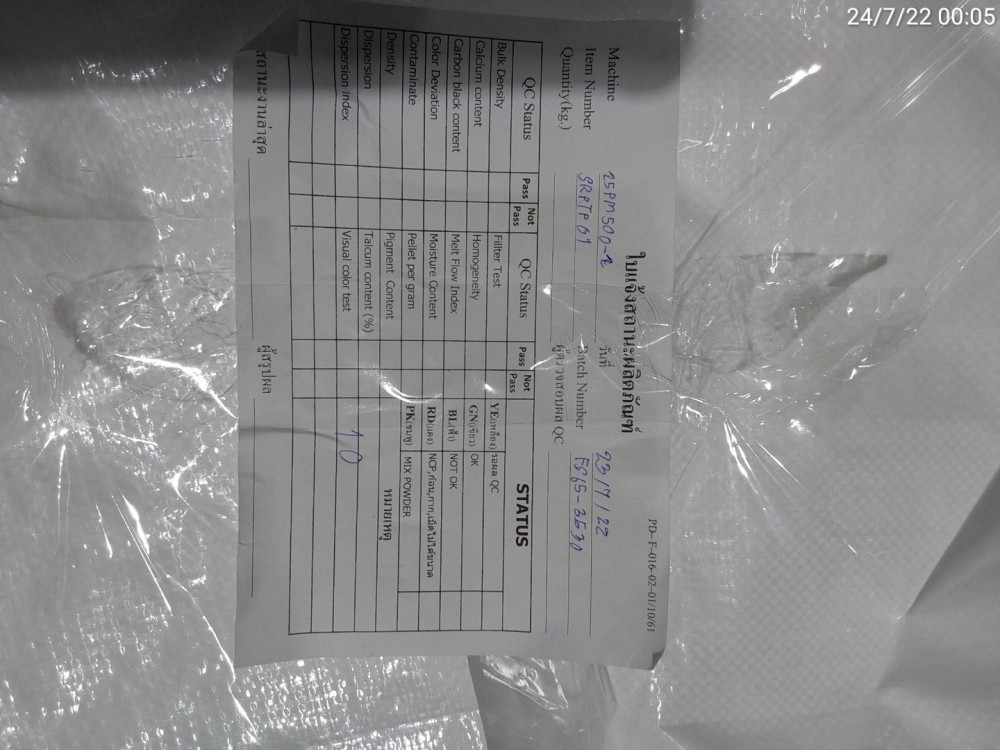 24/7/22 00:05
PD- F-016-02-01/10/61
ใบแจ้งสถานะผลิตภัณฑ์
Machine 25PM500-2 วันที่ 23/7/22
Item Number SRPTP01 Batch Number FS65-3530
Quantity(kg.) ผู้ตรวจสอบผล QC
QC Status Pass Not Pass QC Status Pass Not Pass STATUS
Bulk Density Fillter Test YE(เหลือง) รอผล QC
Calcium content Homogeneity GN(เขียว) OK
Carbon black content Melt Flow Index BL(ฟ้า) NOT OK
Color Deviation Moisture Content RD(แดง) NCP,ก้อน,กาก,เม็ดไม่ได้ขนาด
Contaminate Pellet per gram PK(ชมพู) MIX POWDER
Density Pigment Content หมายเหตุ
Dispersion Talcum content (%) 10
Dispersion index Visual color test
สถานะงานล่าสุด ผู้สรุปผล